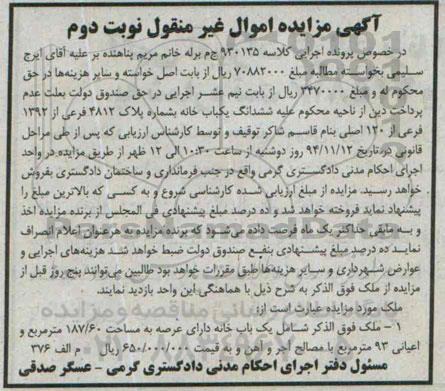 آگهی مزایده اموال غیر منقول نوبت دوم
در خصوص پرونده اجرایی کلاسه ۹۳۰۱۳۵ ج‌م برله خانم مریم پناهنده بر علیه آقای ایرج
سلیمی بخواسته مطالبه مبلغ ۷۰۸۸۲۰۰۰ ریال از بابت اصل خواسته و سایر هزینه‌ها در حق
محکوم له و مبلغ ۳۴۷۰۰۰۰ ریال از بابت نیم عشر اجرایی در حق صندوق دولت بعلت عدم
پرداخت دین از ناحیه محکوم علیه ششدانگ یکباب خانه بشماره پلاک ۴۸۱۲ فرعی از ۱۳۹۲
فرعی از ۱۲۰ اصلی بنام قاسم شاکر توقیف و توسط کارشناس ارزیابی که پس از طی مراحل
قانونی در تاریخ ۹۴/۱۱/۱۲ روز دوشنبه از ساعت ۱۰:۳۰ الی ۱۲ ظهر از طریق مزایده در واحد
اجرای احکام مدنی دادگستری گرمی واقع در جنب فرمانداری و ساختمان دادگستری بفروش
خواهد رسید. مزایده از مبلغ ارزیابی شده کارشناسی شروع و به کسی که بالاترین مبلغ را
پیشنهاد نماید فروخته خواهد شد و ده درصد مبلغ پیشنهادی فی المجلس از برنده مزایده اخذ
و به مابقی حداکثر یک ماه فرصت داده می‌شود که برنده مزایده به هرعنوان اعلام انصراف
نماید ده درصد مبلغ پیشنهادی بنفع صندوق دولت ضبط خواهد شد هزینه‌های اجرایی و
عوارض شهرداری و سایر هزینه‌ها طبق مقررات خواهد بود طالبین می‌توانند پنج روز قبل از
مزایده از ملک فوق الذکر به شرح ذیل با هماهنگی این واحد بازدید نمایند.
ملک مورد مزایده عبارت است از:
۱ - ملک فوق الذکر شامل یک باب خانه دارای عرصه به مساحت ۱۸۷/۶۰ مترمربع و
اعیانی ۹۳ مترمربع با مصالح آجر و آهن و به قیمت ۶۵۰/۰۰۰/۰۰۰ ریال م الف ۳۷۶
مسئول دفتر اجرای احکام مدنی دادگستری گرمی - عسگر صدقی